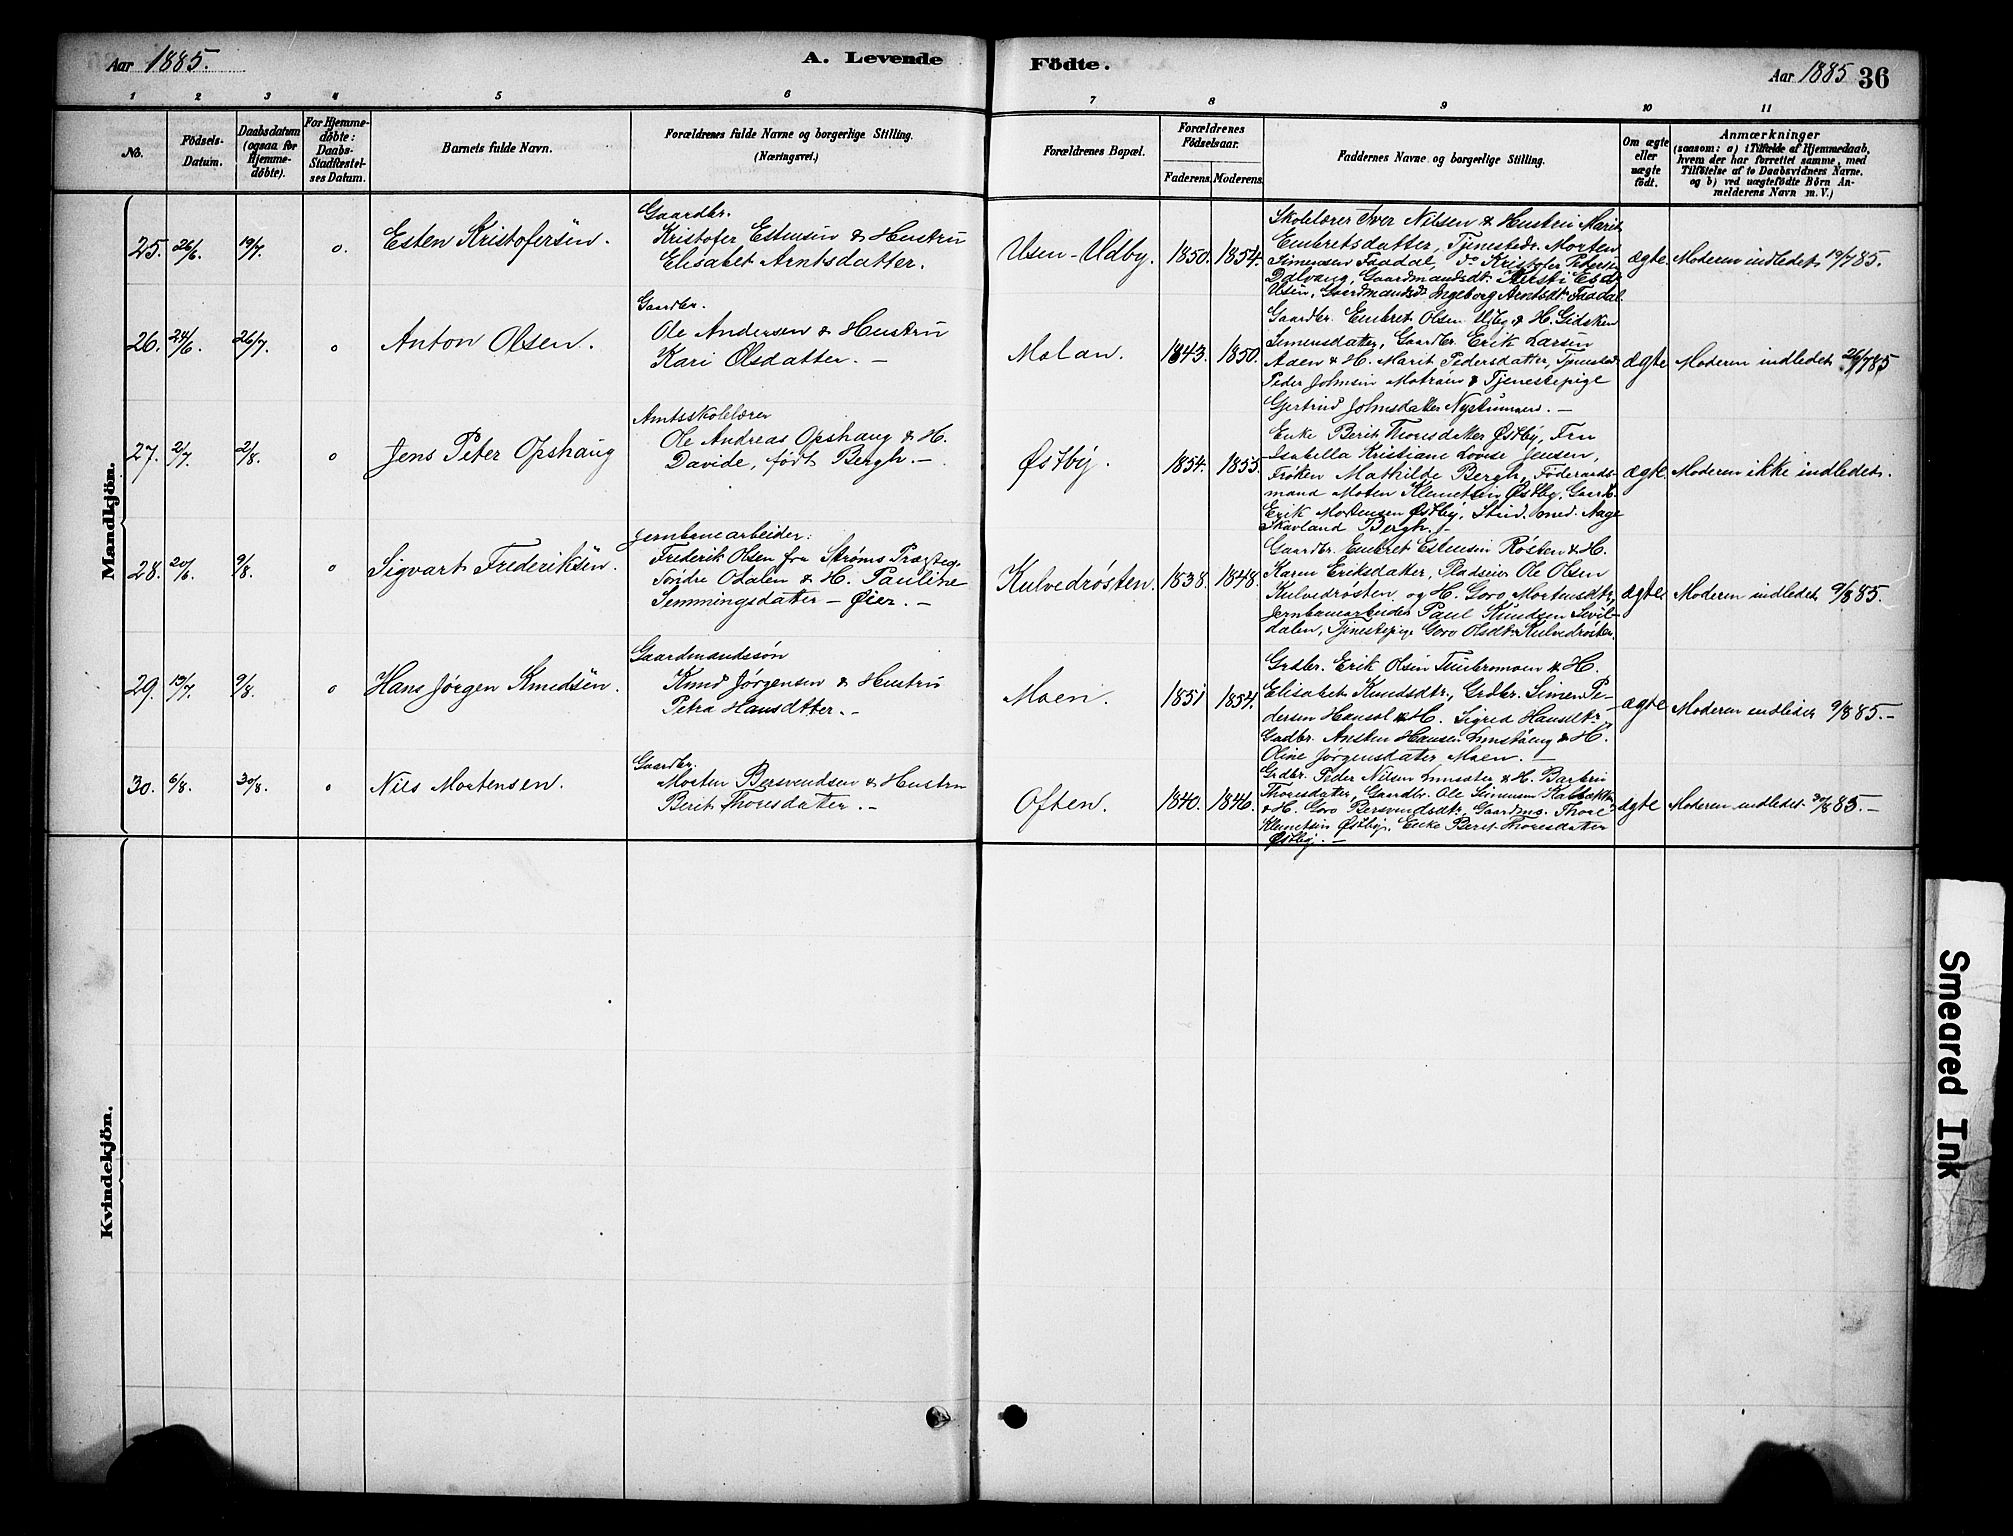 Aar 1885.
A. Levende Födte.
Aar 1885 36
1 2 3 4 5 6 7 8 9 10 11
No.
Födsels-Datum.
Daabsdatum (ogsaa for Hjemmedøbte).
For Hjemmedøbte: Daabs-Stadfæstelses Datum.
Barnets fulde Navn.
Forældrenes fulde Navne og borgerlige Stilling.
(Næringsvei.)
Forældrenes Bopæl.
Forældrenes Födselsaar.
Faderens. Moderens.
Faddernes Navne og borgerlige Stilling.
Om ægte eller uægte födt.
Anmærkninger
(saasom: a) i Tilfælde af Hjemmedaab,
hvem der har forrettet samme, med
Tilföielse af to Daabsvidners Navne,
og b) ved uægtefödte Börn An-
melderens Navn m. V.)
Mandkjön.
25. 26/6. 19/7. o. Esten Kristofersen.
Gaardbr.
Kristofer Estensen & Hustru
Elisabet Arntsdatter.
Usen-Udby. 1850. 1854.
Skolelærer Iver Nilsen & Hustru Marit
Embretsdatter, Tjenestedr. Morten
Simensen Faadal, do Kristofer Peders.
Dalvang, Gaardmandsdt. Kersti Est.
Usen, Gaardmandsdt. Ingeborg Arntsdt. Faadal
ægte. Moderen indledet 19/7 85.
26. 24/6. 26/7. o Anton Olsen.
Gaardbr.
Ole Andersen & Hustru
Kari Olsdatter. —
Molan. 1843. 1850.
Gaardbr. Embret Olsen Udby & H. Gidsken
Simensdatter, Gaardbr. Erik Larsen
Aaen & H. Marit Pedersdatter, Tjenestedr.
Peder Johnsen & Tjenestepige
Gjertrud Johnsdatter. —
ægte Moderen indledet 26/7 85
27. 2/7 2/8. o Jens Peter Opshaug
Amtsskolelærer
Ole Andreas Opshaug & H.
Davide, født Bergh. —
Østby. 1854. 1855.
Enke Berit Thoresdatter Østby, Fru
Isabella Kristiane Lovise Jensen,
Frøken Mathilde Bergh, Föderaads-
mand Moten Klemetsen Østby, Gaardb.
Erik Mortensen Østby, Stud. med. Aage
Skavland Bergh. —
ægte. Moderen ikke indledet.
28. 20/6. 9/8. o Sigvart Frederiksen.
Jernbanearbeider:
Frederik Olsen fra Strøms Præsteg.
Søndre Odalen & H. Pauline
Semmingsdatter — Øier. —
Kulvedrøsten. 1838. 1848.
Gaardbr. Embret Estensen Røsten & H.
Karen Eriksdatter, Pladseier Ole Olsen
Kulvedrøsten og H. Goro Mortensdtr,
Jernbanearbeider Paul Knudsen
dalen, Tjenestepige Goro Olsdt. Kulvedrøsten.
ægte. Moderen indledet 9/8 85.
29. 19/7. 9/8. o Hans Jørgen Knudsen.
Gaardmandssøn
Knud Jørgensen & Hustru
Petra Hansdtter. —
Moen. 1851 1854.
Grdbr. Erik Olsen & H.
Elisabet Knudsdtr., Grdbr. Simen Pe-
dersen & H. Sigrid
Gadbr. Ansten Hansen & H.
Oline Jørgensdatter Moen. —
ægte Moderen indledet 9/8 85. —
30. 6/8. 30/8. o Nils Mortensen.
Gaardbr.
Morten Bersvendsen & Hustru
Berit Thoresdatter. —
Often. 1840. 1846.
Grdbr. Peder Nilsen & H. Barbru
Thoresdatter, Gaardbr. Ole Simensen
& H. Goro Bersvendsdt. Gaardmd. Thore
Klemetsen Østby, Enke Berit Thoresdatter
Østby. —
ægte Moderen indledet 30/8 85. —
Kvindekjön.
Smeared Ink